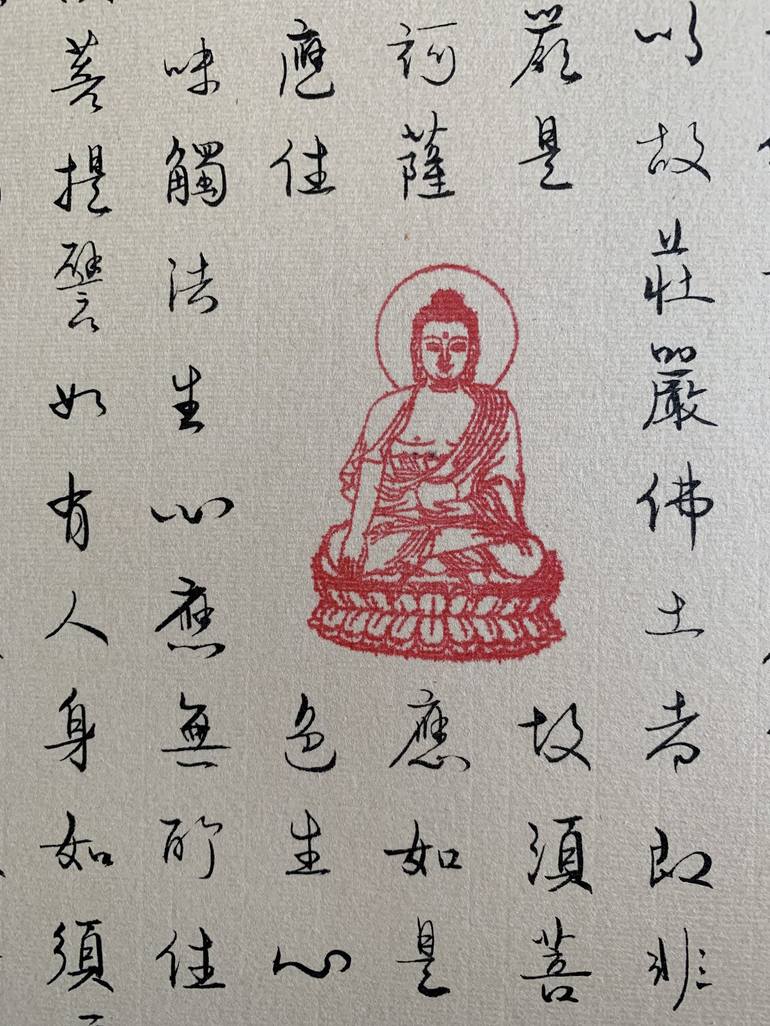 以故莊嚴佛土者即非
嚴是故須菩
訶薩應如是
應住色生心
味觸法生心應無所住
菩提譬如有人身如須